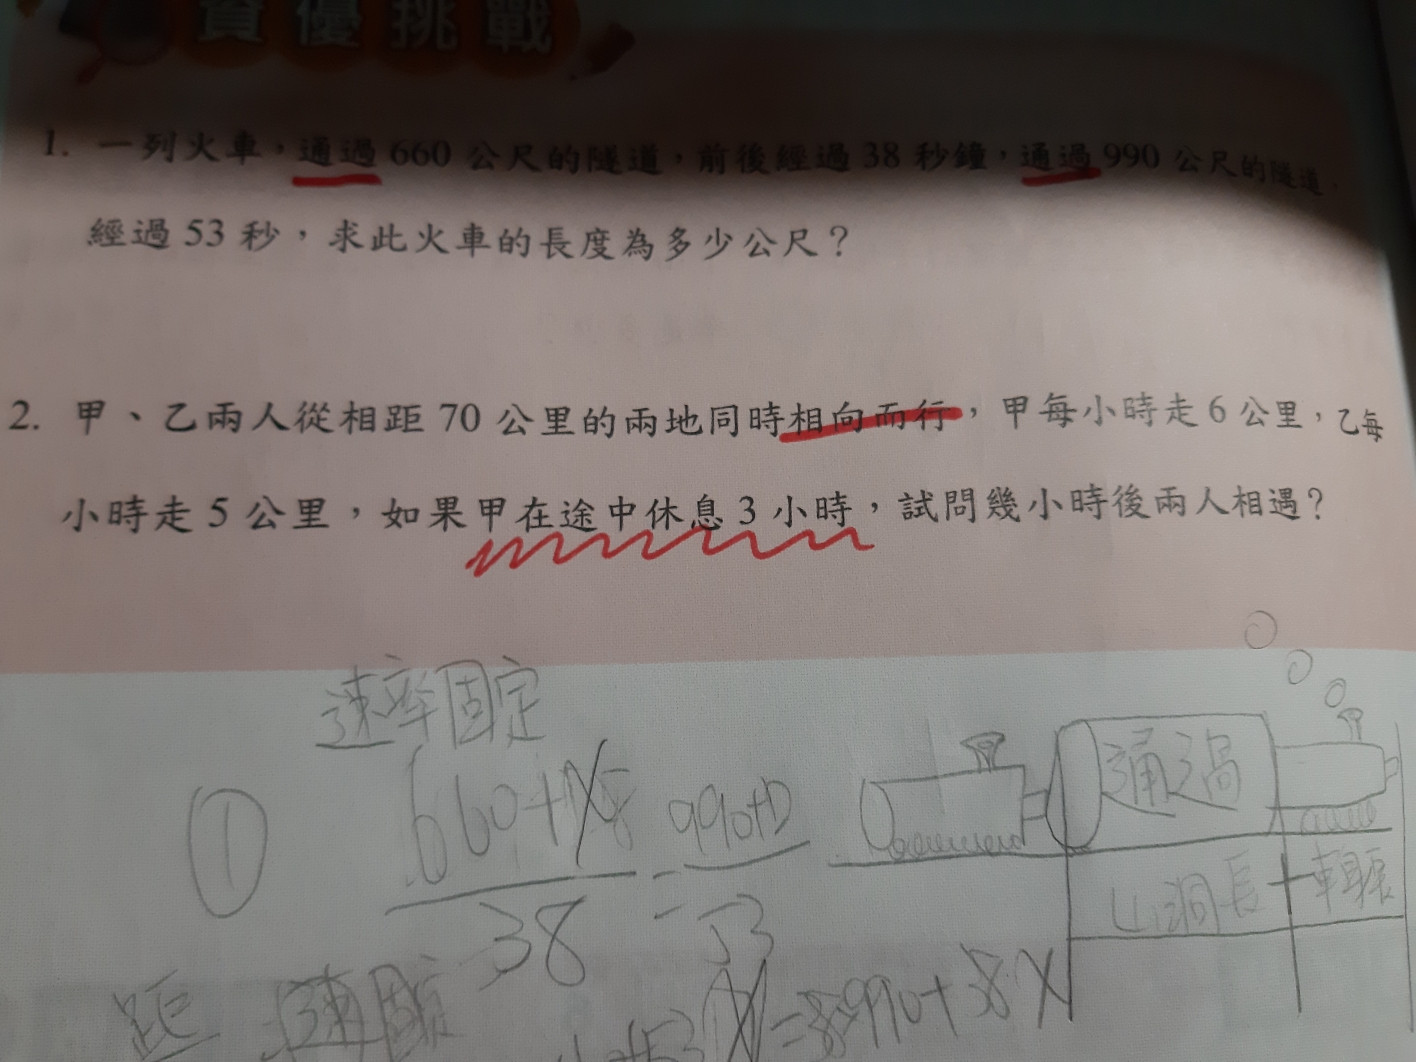 資優挑戰
1. 一列火車，通過 660 公尺的隧道，前後經過 38 秒鐘，通過 990 公尺的隧道，
經過 53 秒，求此火車的長度為多少公尺？
2. 甲、乙兩人從相距 70 公里的兩地同時相向而行，甲每小時走 6 公里，乙每
小時走 5 公里，如果甲在途中休息 3 小時，試問幾小時後兩人相遇？
速率固定
① 660+X 990+D
38 = 53
通過
山洞長 車長
距 速固
53X=38·990+38X